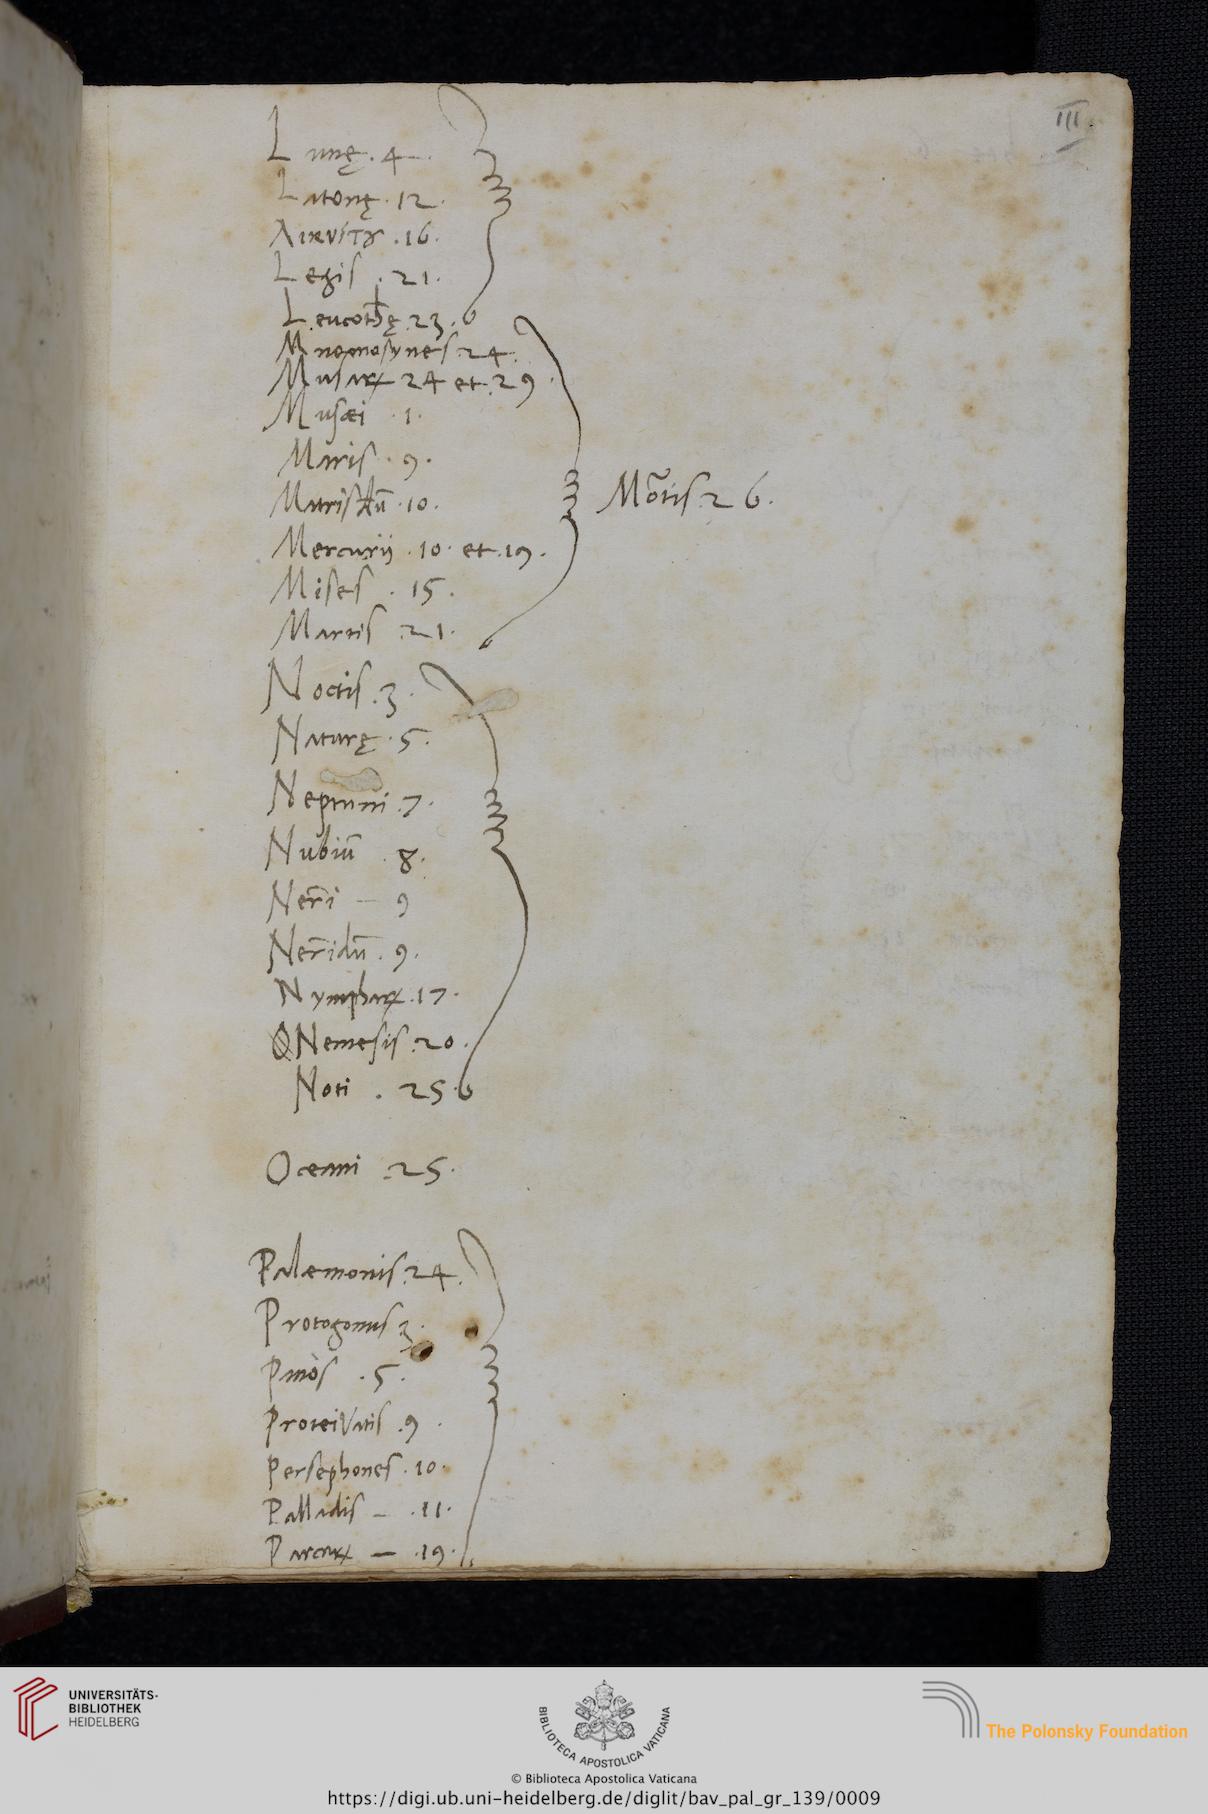 III.
Lunę . 4 .
Latonę . 12 .
Λικνίτȣ . 16 .
Legis . 21 .
Leucothę . 23 .
Mnemosynes . 24 .
Musarꝝ 24 et . 29 .
Musæi . 1 .
Maris . 9 .
Matris dū . 10 .
Mōtis . 26 .
Mercurij . 10 . et . 19 .
Mises . 15 .
Martis . 21 .
Noctis . 3 .
Naturę . 5 .
Neptuni . 7 .
Nubiū . 8 .
Ner̄i — 9
Ner̄idū . 9 .
Nympharꝝ . 17 .
Nemesis . 20 .
Noti . 25 .
Oceani . 25 .
Palæmonis . 24 .
Protogonus 3 .
Panos . 5 .
Protei Vatis . 9 .
Persephones . 10 .
Palladis — . 11 .
Parcarꝝ — . 19 .
UNIVERSITÄTS-
BIBLIOTHEK
HEIDELBERG
BIBLIOTECA APOSTOLICA VATICANA
The Polonsky Foundation
© Biblioteca Apostolica Vaticana
https://digi.ub.uni-heidelberg.de/diglit/bav_pal_gr_139/0009